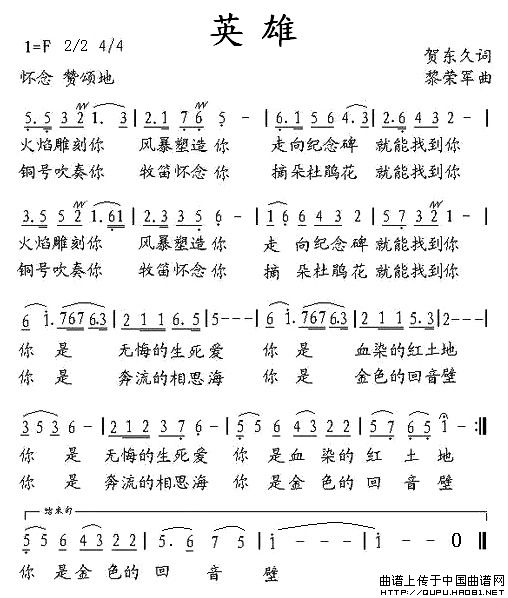 英雄
1=F 2/2 4/4
贺东久词
怀念 赞颂地
黎荣军曲
5.5 3 2 1. 3 | 2.1 7 6 5 - | 6.1 5 6 4.3 | 2.6 4 3 2 - |
火焰雕刻你 风暴塑造你 走向纪念碑 就能找到你
铜号吹奏你 牧笛怀念你 摘朵杜鹃花 就能找到你
3.5 5 2 1.61 | 2.3 3 5 6 - | 1 6 6 4 3 2 | 5 7 3 2 1 - |
火焰雕刻你 风暴塑造你 走 向纪念碑 就能找到你
铜号吹奏你 牧笛怀念你 摘 朵杜鹃花 就能找到你
6 1. 767 6.3 | 2 1 1 2 6.5 | 5 - - - | 6 1. 767 6.3 | 2 1 1 5.3 | 2 - - - |
你 是 无悔的生死爱 你 是 血染的红土地
你 是 奔流的相思海 你 是 金色的回音壁
3 5 3 6 - | 2 1 2 3 7 6 - | 5 5 6 4 3 2 2 | 5 7 6 5 1 - :||
你 是 无悔的生死爱 你 是血 染的 红 土 地
你 是 奔流的相思海 你 是金 色的 回 音 壁
结束句
5 5 6 4 3 2 2 | 5. 6 7 5 | 1 - - - | 1 - - 0 ||
你 是金色的回 音 壁
曲谱上传于中国曲谱网
HTTP://QUPU.HAO81.NET